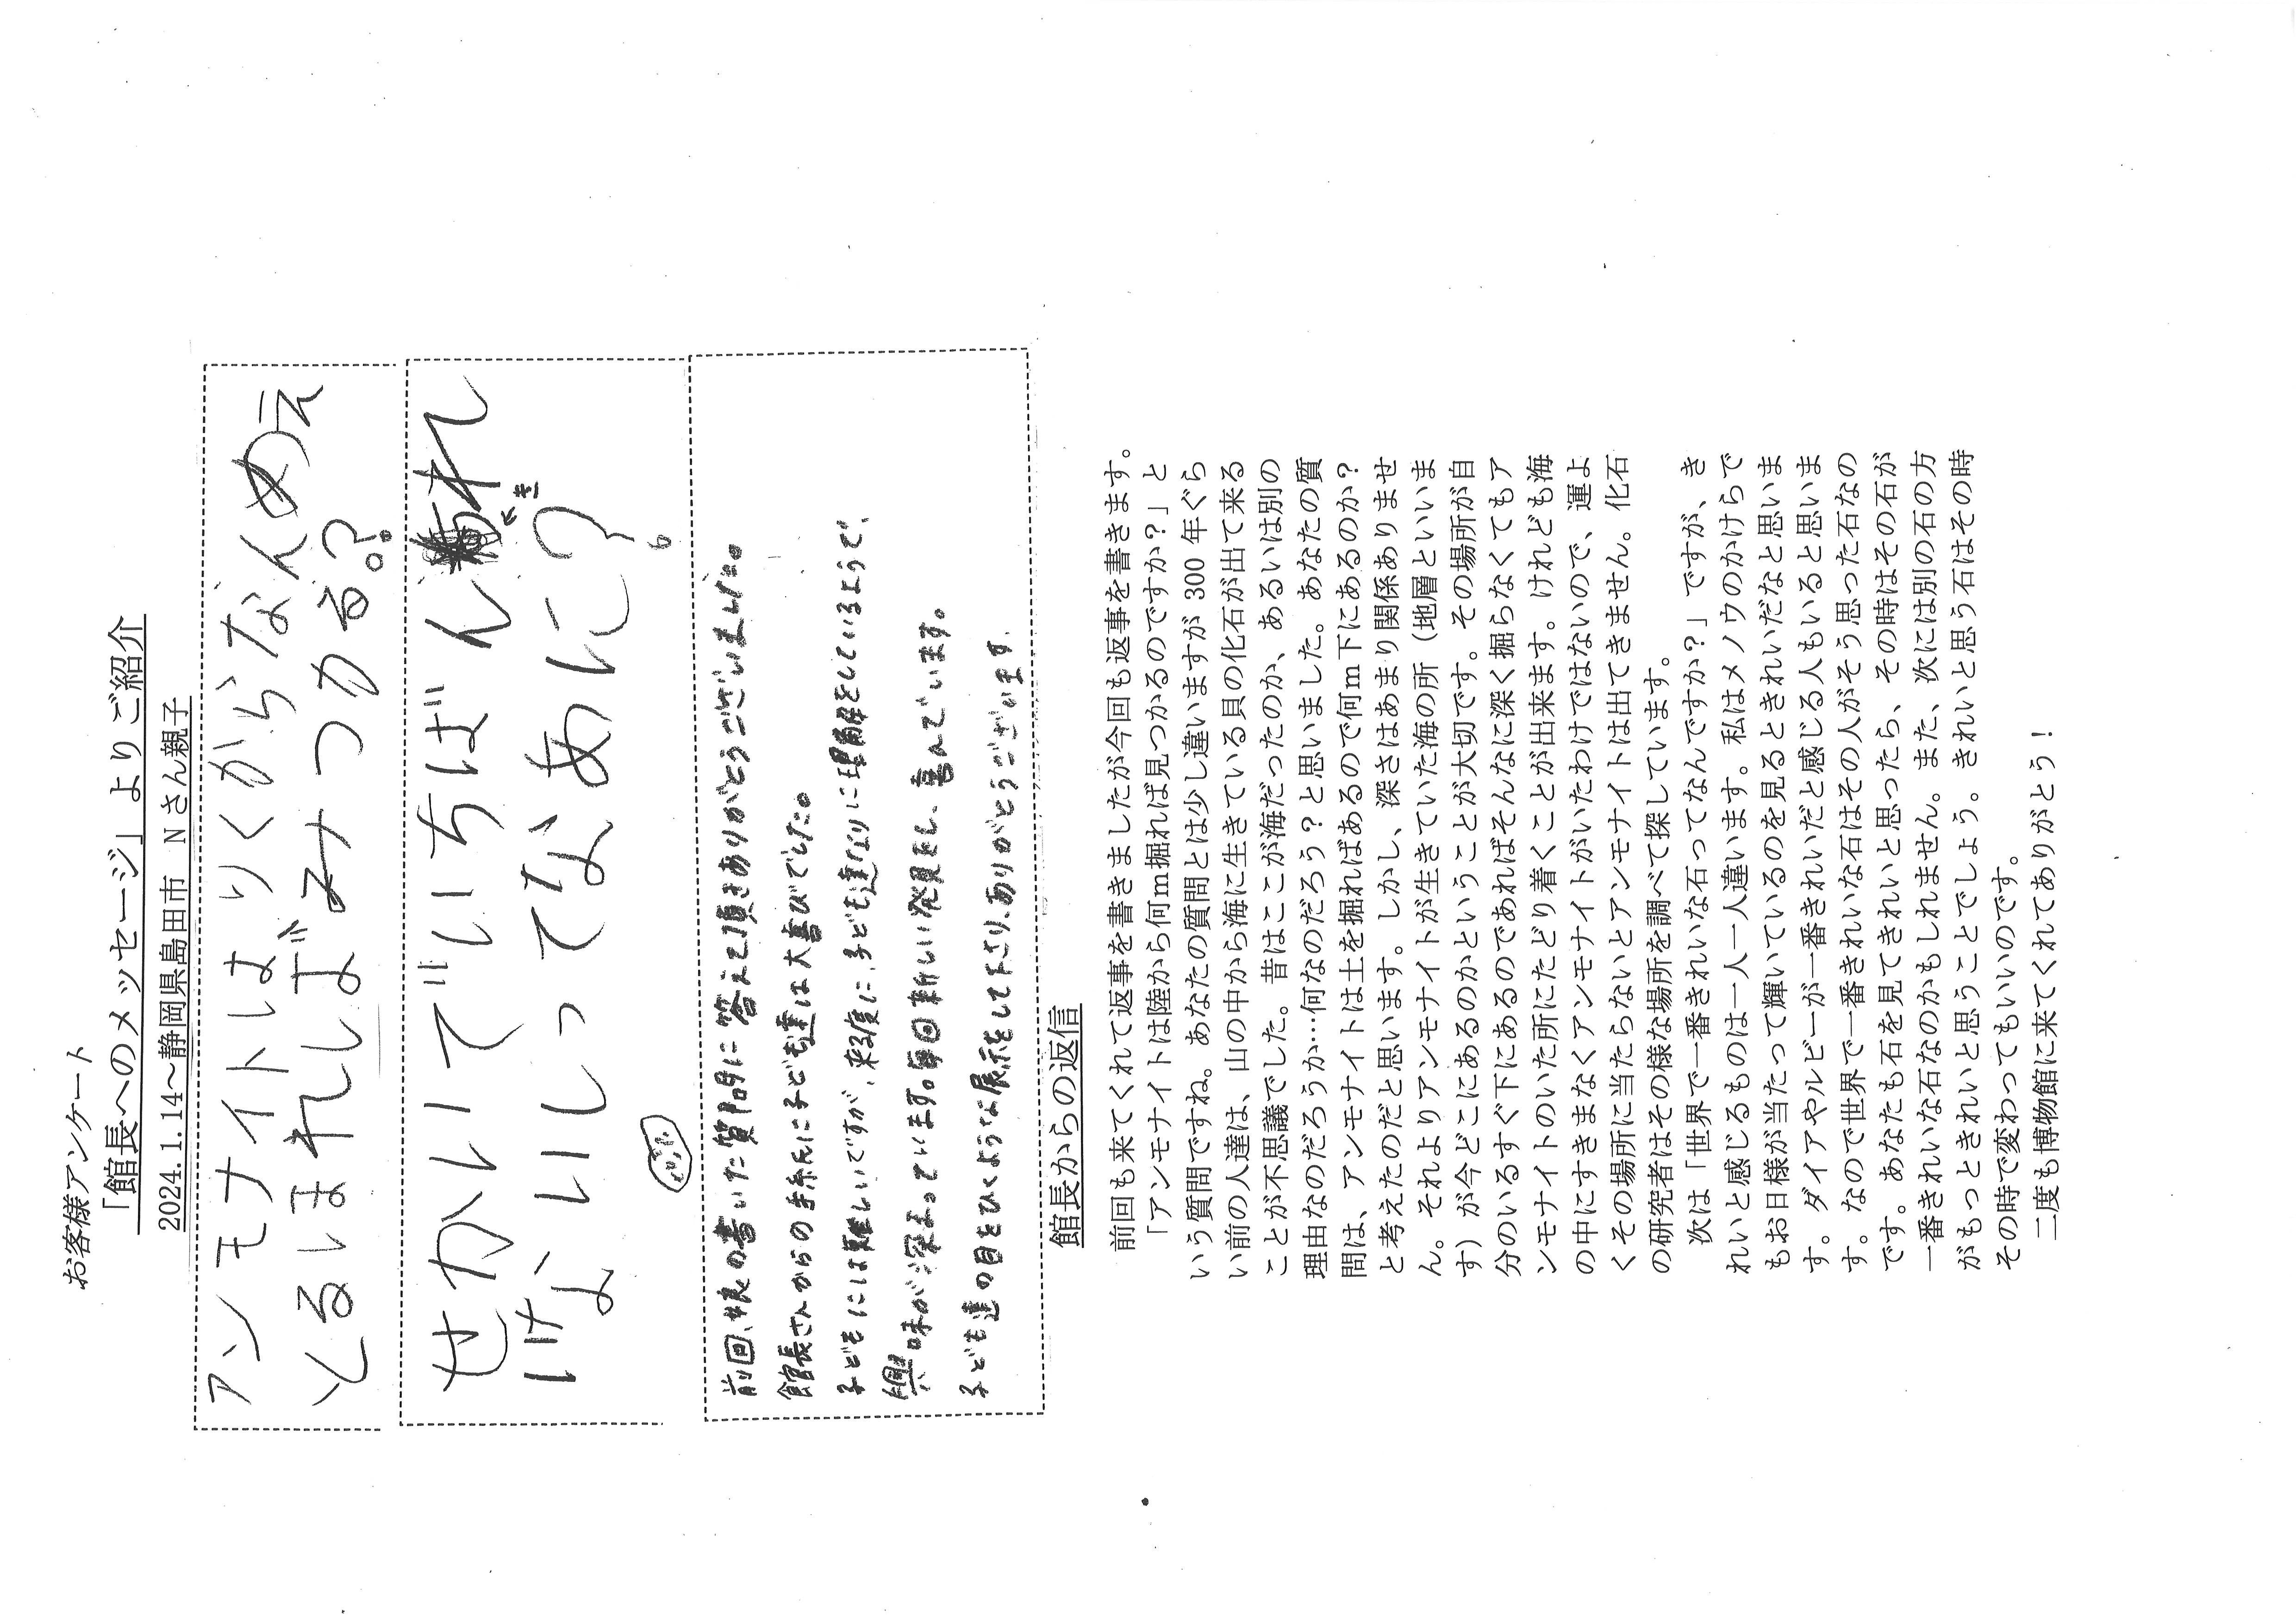 お客様アンケート
「館長へのメッセージ」よりご紹介
2024.1.14～静岡県島田市　Nさん親子
アンモナイトは、りくからなんめえ
とるほれしばみつかる。?
せかいでいちばんきれ
いないしってなあに?
前回、娘の書いた質問に答えて頂きありがとうございました。
館長さんからの手紙に子ども達は大喜びでした。
子どもには難しいですが、来る度に、子ども達なりに理解をしているようで、
興味が深まっています。毎回新しい発見をし、喜んでいます。
子ども達の目をひくような展示をして下さり、ありがとうございます。
館長からの返信
前回も来てくれて返事を書きましたが今回も返事を書きます。
「アンモナイトは陸から何ｍ掘れば見つかるのですか？」と
いう質問ですね。あなたの質問とは少し違いますが 300 年ぐら
い前の人達は、山の中から海に生きている貝の化石が出て来る
ことが不思議でした。昔はここが海だったのか、あるいは別の
理由なのだろうか…何なのだろう？と思いました。あなたの質
問は、アンモナイトは土を掘ればあるので何ｍ下にあるのか？
と考えたのだと思います。しかし、深さはあまり関係ありませ
ん。それよりアンモナイトが生きていた海の所（地層といいま
す）が今どこにあるのかということが大切です。その場所が自
分のいるすぐ下にあるのであればそんなに深く掘らなくてもア
ンモナイトのいた所にたどり着くことが出来ます。けれども海
の中にすきまなくアンモナイトがいたわけではないので、運よ
くその場所に当たらないとアンモナイトは出てきません。化石
の研究者はその様な場所を調べて探しています。
次は「世界で一番きれいな石ってなんですか？」ですが、き
れいと感じるものは一人一人違います。私はメノウのかけらで
もお日様が当たって輝いているのを見るときれいだなと思いま
す。ダイアやルビーが一番きれいだと感じる人もいると思いま
す。なので世界で一番きれいな石はその人がそう思った石なの
です。あなたも石を見てきれいと思ったら、その時はその石が
一番きれいな石なのかもしれません。また、次には別の石の方
がもっときれいと思うことでしょう。きれいと思う石はその時
その時で変わってもいいのです。
二度も博物館に来てくれてありがとう！